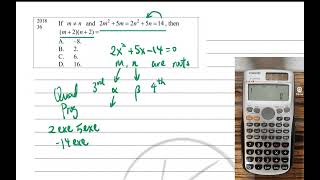 2018
36
If m ≠ n and 2m² + 5m = 2n² + 5n = 14, then
(m + 2)(n + 2) =
A. −8.
B. 2.
C. 6.
D. 16.
2x² + 5x − 14 = 0
m, n are roots
Quad 3rd α β 4th
Prog
2 exe 5 exe
-14 exe
CASIO